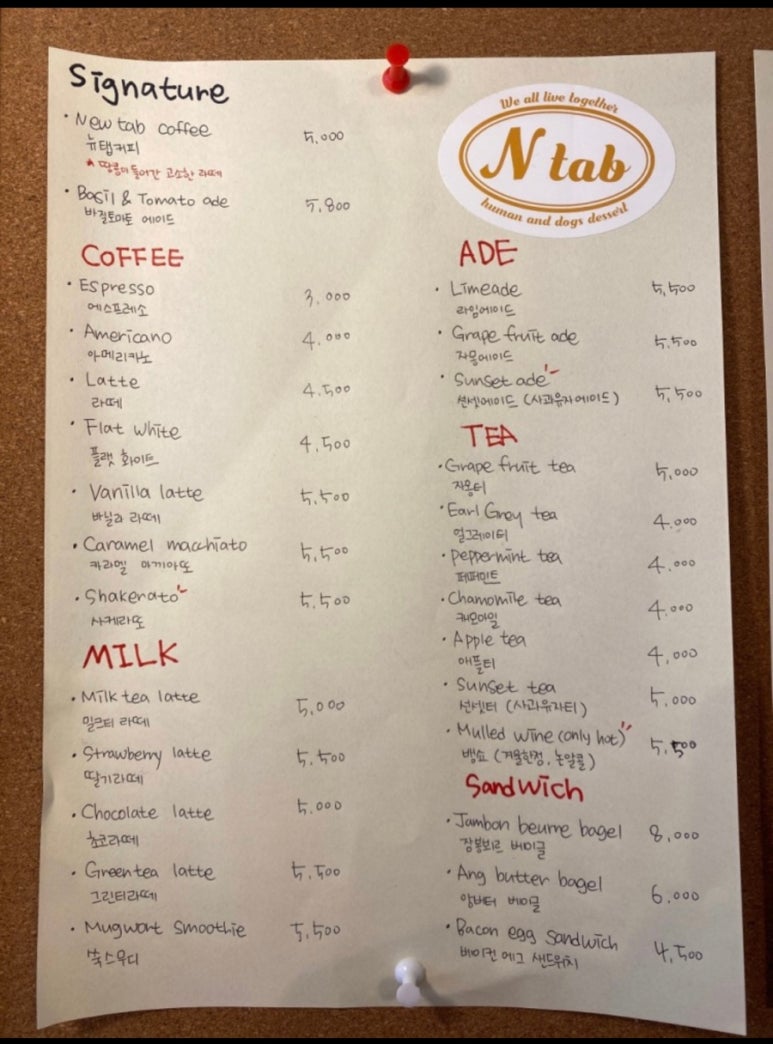 Signature
· New tab coffee 5,000
뉴탭커피
* 땅콩이 들어간 고소한 라떼
· Basil & Tomato ade 5,800
바질토마토 에이드
COFFEE
· Espresso 3,000
에스프레소
· Americano 4,000
아메리카노
· Latte 4,500
라떼
· Flat white 4,500
플랫 화이트
· Vanilla latte 5,500
바닐라 라떼
· Caramel macchiato 5,500
카라멜 마끼아또
· Shakerato 5,500
샤케라또
MILK
· Milk tea latte 5,000
밀크티 라떼
· Strawberry latte 5,500
딸기라떼
· Chocolate latte 5,000
초코라떼
· Green tea latte 5,500
그린티라떼
· Mugwort Smoothie 5,500
쑥스무디
We all live together
N tab
human and dogs dessert
ADE
· Limeade 5,500
라임에이드
· Grape fruit ade 5,500
자몽에이드
· Sunset ade 5,500
선셋에이드 (사과유자에이드)
TEA
· Grape fruit tea 5,000
자몽티
· Earl Grey tea 4,000
얼그레이티
· peppermint tea 4,000
페퍼민트
· Chamomile tea 4,000
캐모마일
· Apple tea 4,000
애플티
· Sunset tea 5,000
선셋티 (사과유자티)
· Mulled wine (only hot) 5,500
뱅쇼 (겨울한정, 논알콜)
Sandwich
· Jambon beurre bagel 8,000
잠봉뵈르 베이글
· Ang butter bagel 6,000
앙버터 베이글
· Bacon egg sandwich 4,500
베이컨 에그 샌드위치